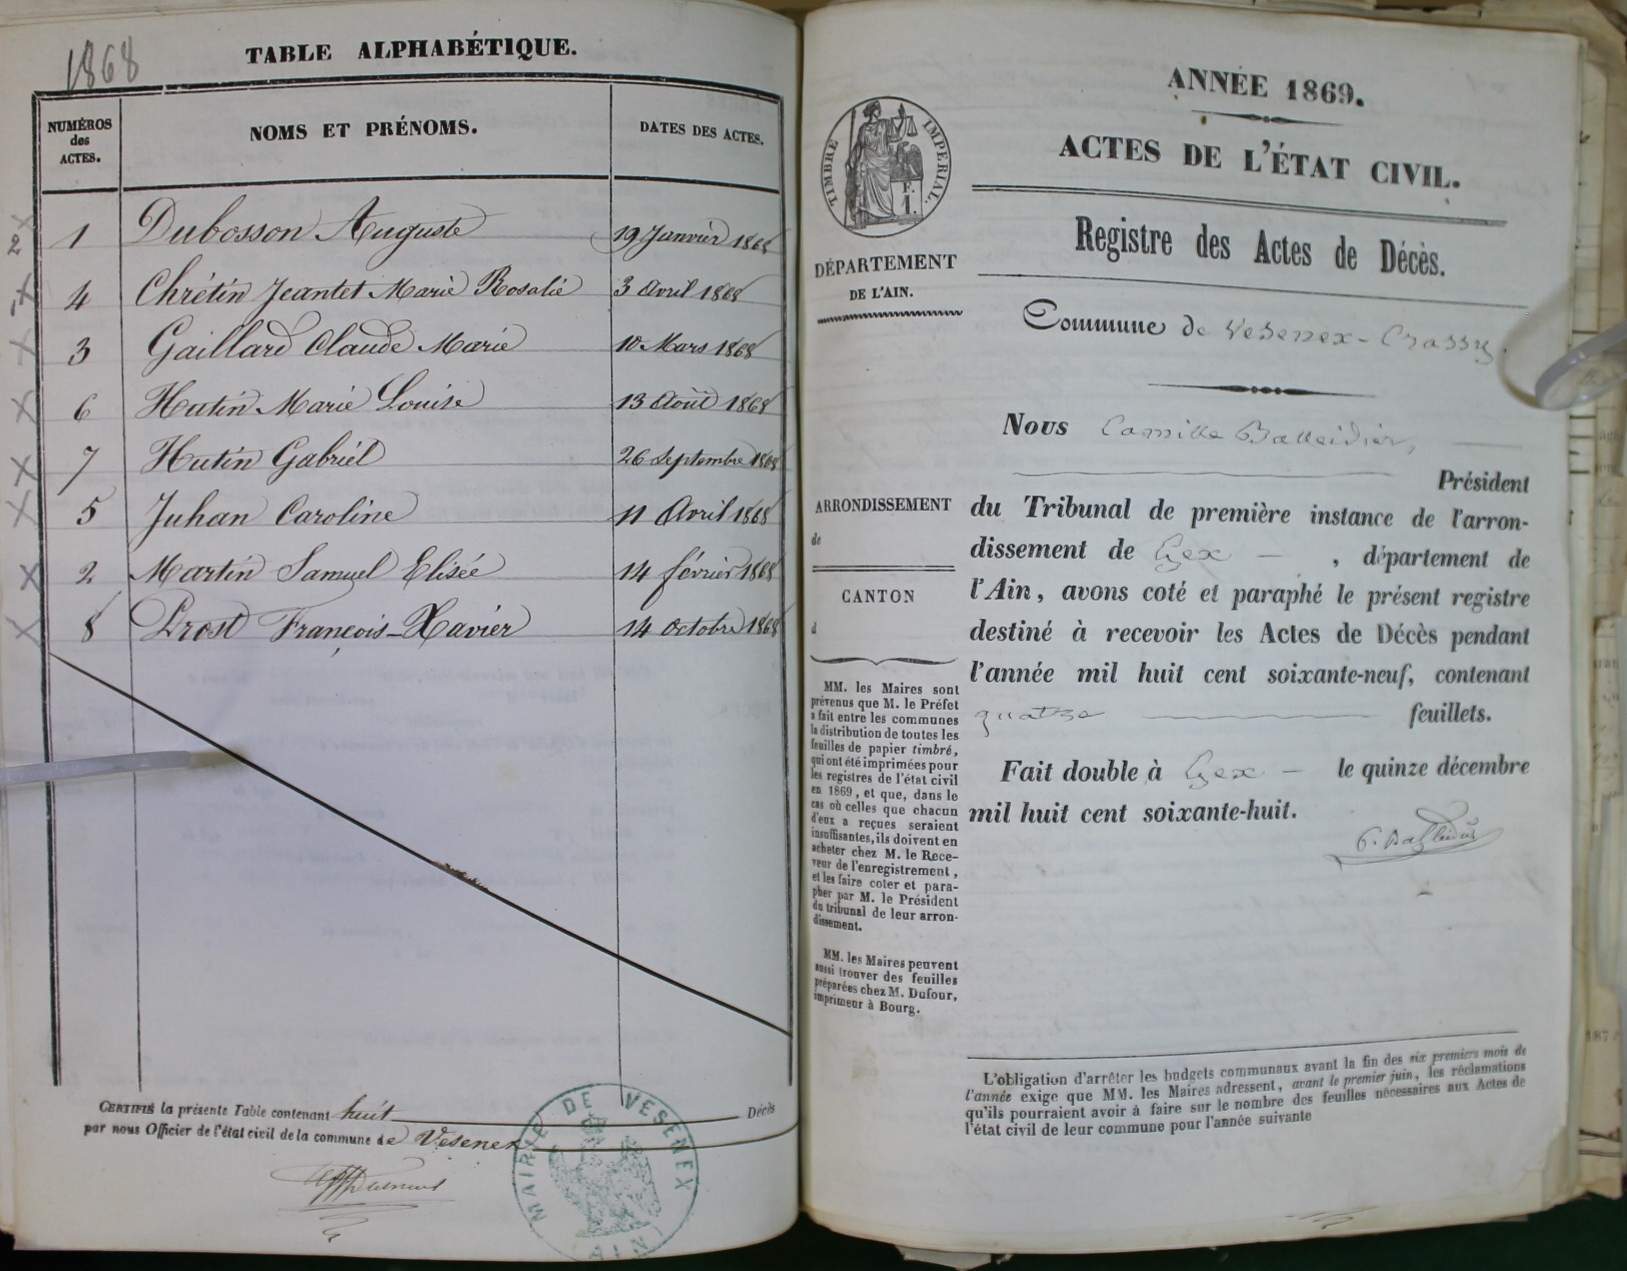 1868
TABLE ALPHABÉTIQUE.
NUMÉROS
des
ACTES.
NOMS ET PRÉNOMS.
DATES DES ACTES.
1 Dubosson Auguste 19 Janvier 1868
4 Chrétin Jeantet Marie Rosalie 3 Avril 1868
3 Gaillard Claude Marie 10 Mars 1868
6 Hutin Marie Louise 13 Août 1868
7 Hutin Gabriel 26 Septembre 1868
5 Juhan Caroline 11 Avril 1868
2 Martin Samuel Elisée 14 février 1868
8 Prost François-Xavier 14 octobre 1868
CERTIFIÉ la présente Table contenant huit Décès
par nous Officier de l'état civil de la commune de Vesenex
MAIRIE DE VESENEX
(AIN)
ANNÉE 1869.
ACTES DE L'ÉTAT CIVIL.
Registre des Actes de Décès.
Commune de Vesenex-Crassy.
TIMBRE IMPÉRIAL.
DÉPARTEMENT
DE L'AIN.
ARRONDISSEMENT
de
CANTON
d
MM. les Maires sont
prévenus que M. le Préfet
a fait entre les communes
la distribution de toutes les
feuilles de papier timbré,
qui ont été imprimées pour
les registres de l'état civil
en 1869, et que, dans le
cas où celles que chacun
d'eux a reçues seraient
insuffisantes, ils doivent en
acheter chez M. le Rece-
veur de l'enregistrement,
et les faire coter et para-
pher par M. le Président
du tribunal de leur arron-
dissement.
MM. les Maires peuvent
aussi trouver des feuilles
préparées chez M. Dufour,
imprimeur à Bourg.
Nous Camille Balleidier,
Président
du Tribunal de première instance de l'arron-
dissement de Gex, département de
l'Ain, avons coté et paraphé le présent registre
destiné à recevoir les Actes de Décès pendant
l'année mil huit cent soixante-neuf, contenant
quatre feuillets.
Fait double à Gex le quinze décembre
mil huit cent soixante-huit.
C. Balleidier
L'obligation d'arrêter les budgets communaux avant la fin des six premiers mois de
l'année exige que MM. les Maires adressent, avant le premier juin, les réclamations
qu'ils pourraient avoir à faire sur le nombre des feuilles nécessaires aux Actes de
l'état civil de leur commune pour l'année suivante